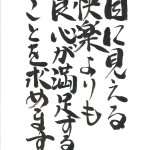 目に見える
快楽よりも
良心が満足する
ことを求めます